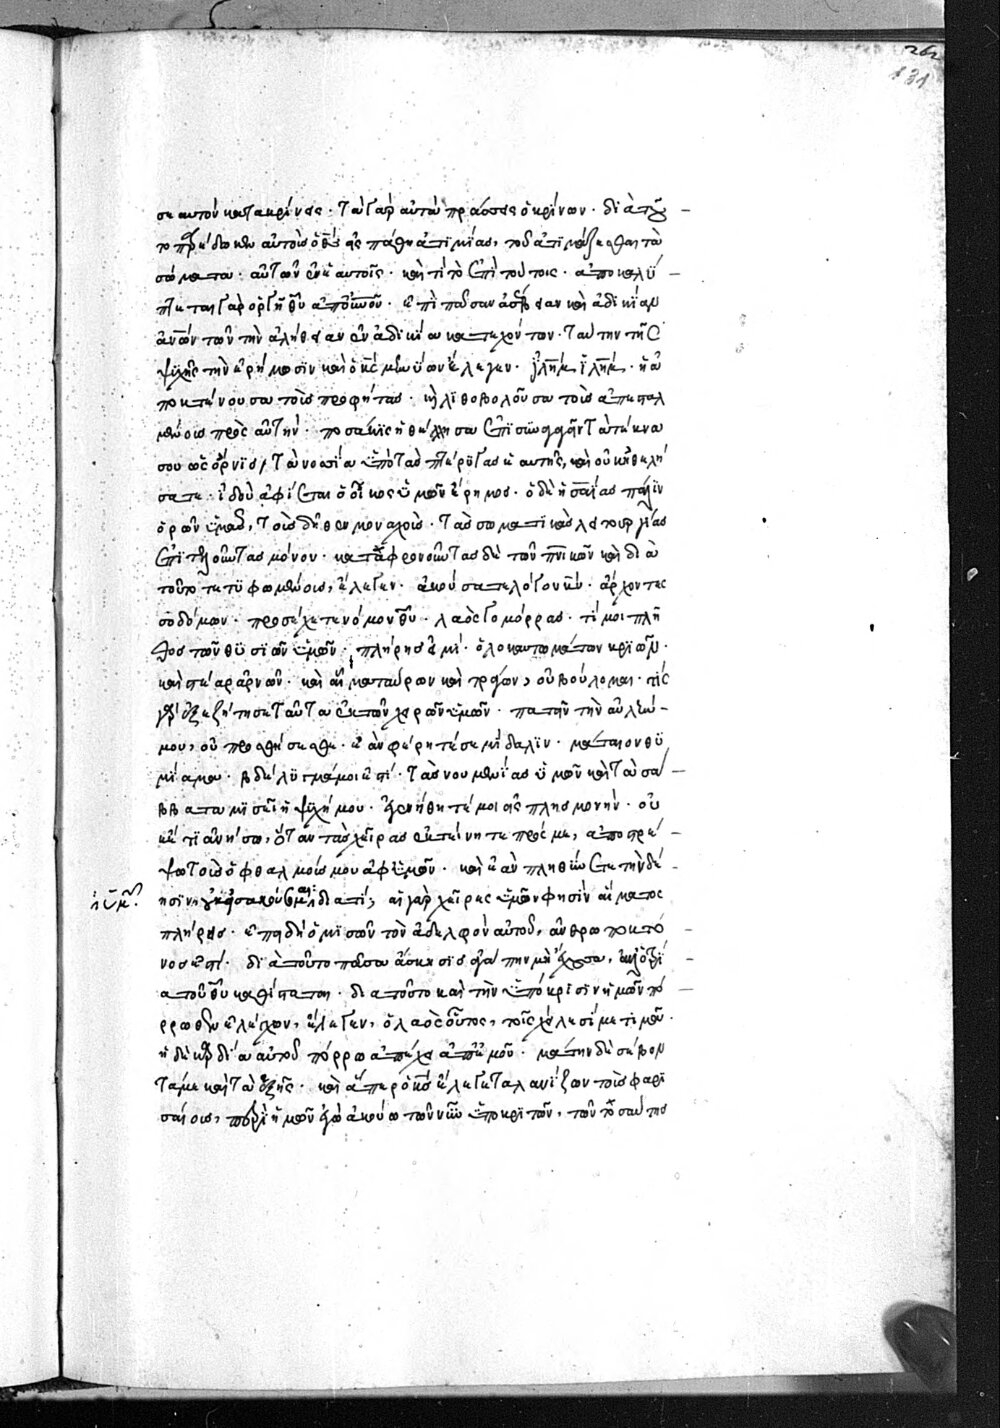 262
131
σεαυτὸν κατακρίνεις· τὰ γὰρ αὐτὰ πράσσεις ὁ κρίνων· διὰ τοῦ
το παρέδωκεν αὐτοὺς ὁ θς εἰς πάθη ἀτιμίας, τοῦ ἀτιμάζεσθαι τὰ
σώματα αὐτῶν ἐν ἑαυτοῖς· καὶ τί τὸ ἐπὶ τούτοις· ἀποκαλύ
πτεται γὰρ ὀργὴ θυ ἀπ' οὐνοῦ· ἐπὶ πᾶσαν ἀσέβειαν καὶ ἀδικίαν
ἀνῶν τῶν τὴν ἀλήθειαν ἐν ἀδικία κατεχόντων· ταύτην τῆς
ψυχῆς τὴν ἐρήμωσιν καὶ ὁ κς ἔλεγεν· ἰλημ ἰλημ· ἡ ἀ
ποκτένουσα τοὺς προφήτας· κ λιθοβολοῦσα τοὺς ἀπεσταλ
μένους πρὸς αὐτήν· ποσάκις ἠθέλησα ἐπισυναγαγεῖν τὰ τέκνα
σου ὡς ὄρνις, τὰ νοσία ὑπὸ τὰς πτέρυγας ἑαυτῆς, καὶ οὐκ ἠθελή
σατε· ἰδοὺ ἀφίεται ὁ οἶκος ὑμῶν ἔρημος· ὁ δὲ ἡσαΐας πάλιν
ὁρῶν ἡμᾶς, τοὺς δῆθεν μοναχοὺς· τὰς σωματικὰς λειτουργίας
ἐπιτελοῦντας μόνον· καταφρονοῦντας δὲ τῶν πνικῶν καὶ διὰ
τοῦτο τετυφωμένους, ἔλεγεν· ἀκούσατε λόγον κυ· ἄρχοντες
σοδόμων· προσέχετε νόμον θυ· λαὸς γομόρρας· τί μοι πλῆ
θος τῶν θυσιῶν ὑμῶν· πλήρης εἰμί· ὁλοκαυτωμάτων κριῶν·
καὶ στέαρ ἀρνῶν· καὶ αἷμα ταύρων καὶ τράγων, οὐ βούλομαι· τίς
γὰρ ἐξεζήτησε ταῦτα ἐκ τῶν χειρῶν ὑμῶν· πατεῖν τὴν αὐλήν
μου, οὐ προσθήσεσθε· ἐὰν φέρητέ σεμίδαλιν· μάταιον θυ
μίαμα· βδέλυγμά μοι ἐστί· τὰς νουμηνίας ὑμῶν καὶ τὰ σά
ββατα μισεῖ ἡ ψυχή μου· ἐγενήθητέ μοι εἰς πλησμονήν· οὐ
κέτι ἀνήσω, ὅταν τὰς χεῖρας ἐκτείνητε πρός με, ἀποστρέ
ψω τοὺς ὀφθαλμούς μου ἀφ' ὑμῶν· καὶ ἐὰν πληθύνητε τὴν δέ
ησιν, οὐκ εἰσακούσομαι· διατί; αἱ γὰρ χεῖρες ὑμῶν φησὶν αἵματος
πλήρεις· ἐπειδὴ ὁ μισῶν τὸν ἀδελφὸν αὐτοῦ, ἀνθρωποκτό
νος ἐστί· διὰ τοῦτο πᾶσα ἄσκησις ἀγάπην μὴ ἔχουσα,
α τοῦ θυ καθίσταται· διὰ τοῦτο καὶ τὴν ὑπόκρισιν ἡμῶν πό
ρρωθεν ἐλέγχων, ἔλεγεν, ὁ λαὸς οὗτος, τοῖς χείλεσί με τιμᾶ·
ἡ δὲ καρδία αὐτοῦ πόρρω ἀπέχει ἀπ' ἐμοῦ· μάτην δὲ σέβον
ταί με καὶ τὰ ἑξῆς· καὶ ἅπερ ὁ κς ἔλεγε ταλανίζων τοὺς φαρι
σαίους, περὶ ἡμῶν ἐγὼ ἀκούω τῶν νῦν ὑποκριτῶν, τῶν τοσαύτης